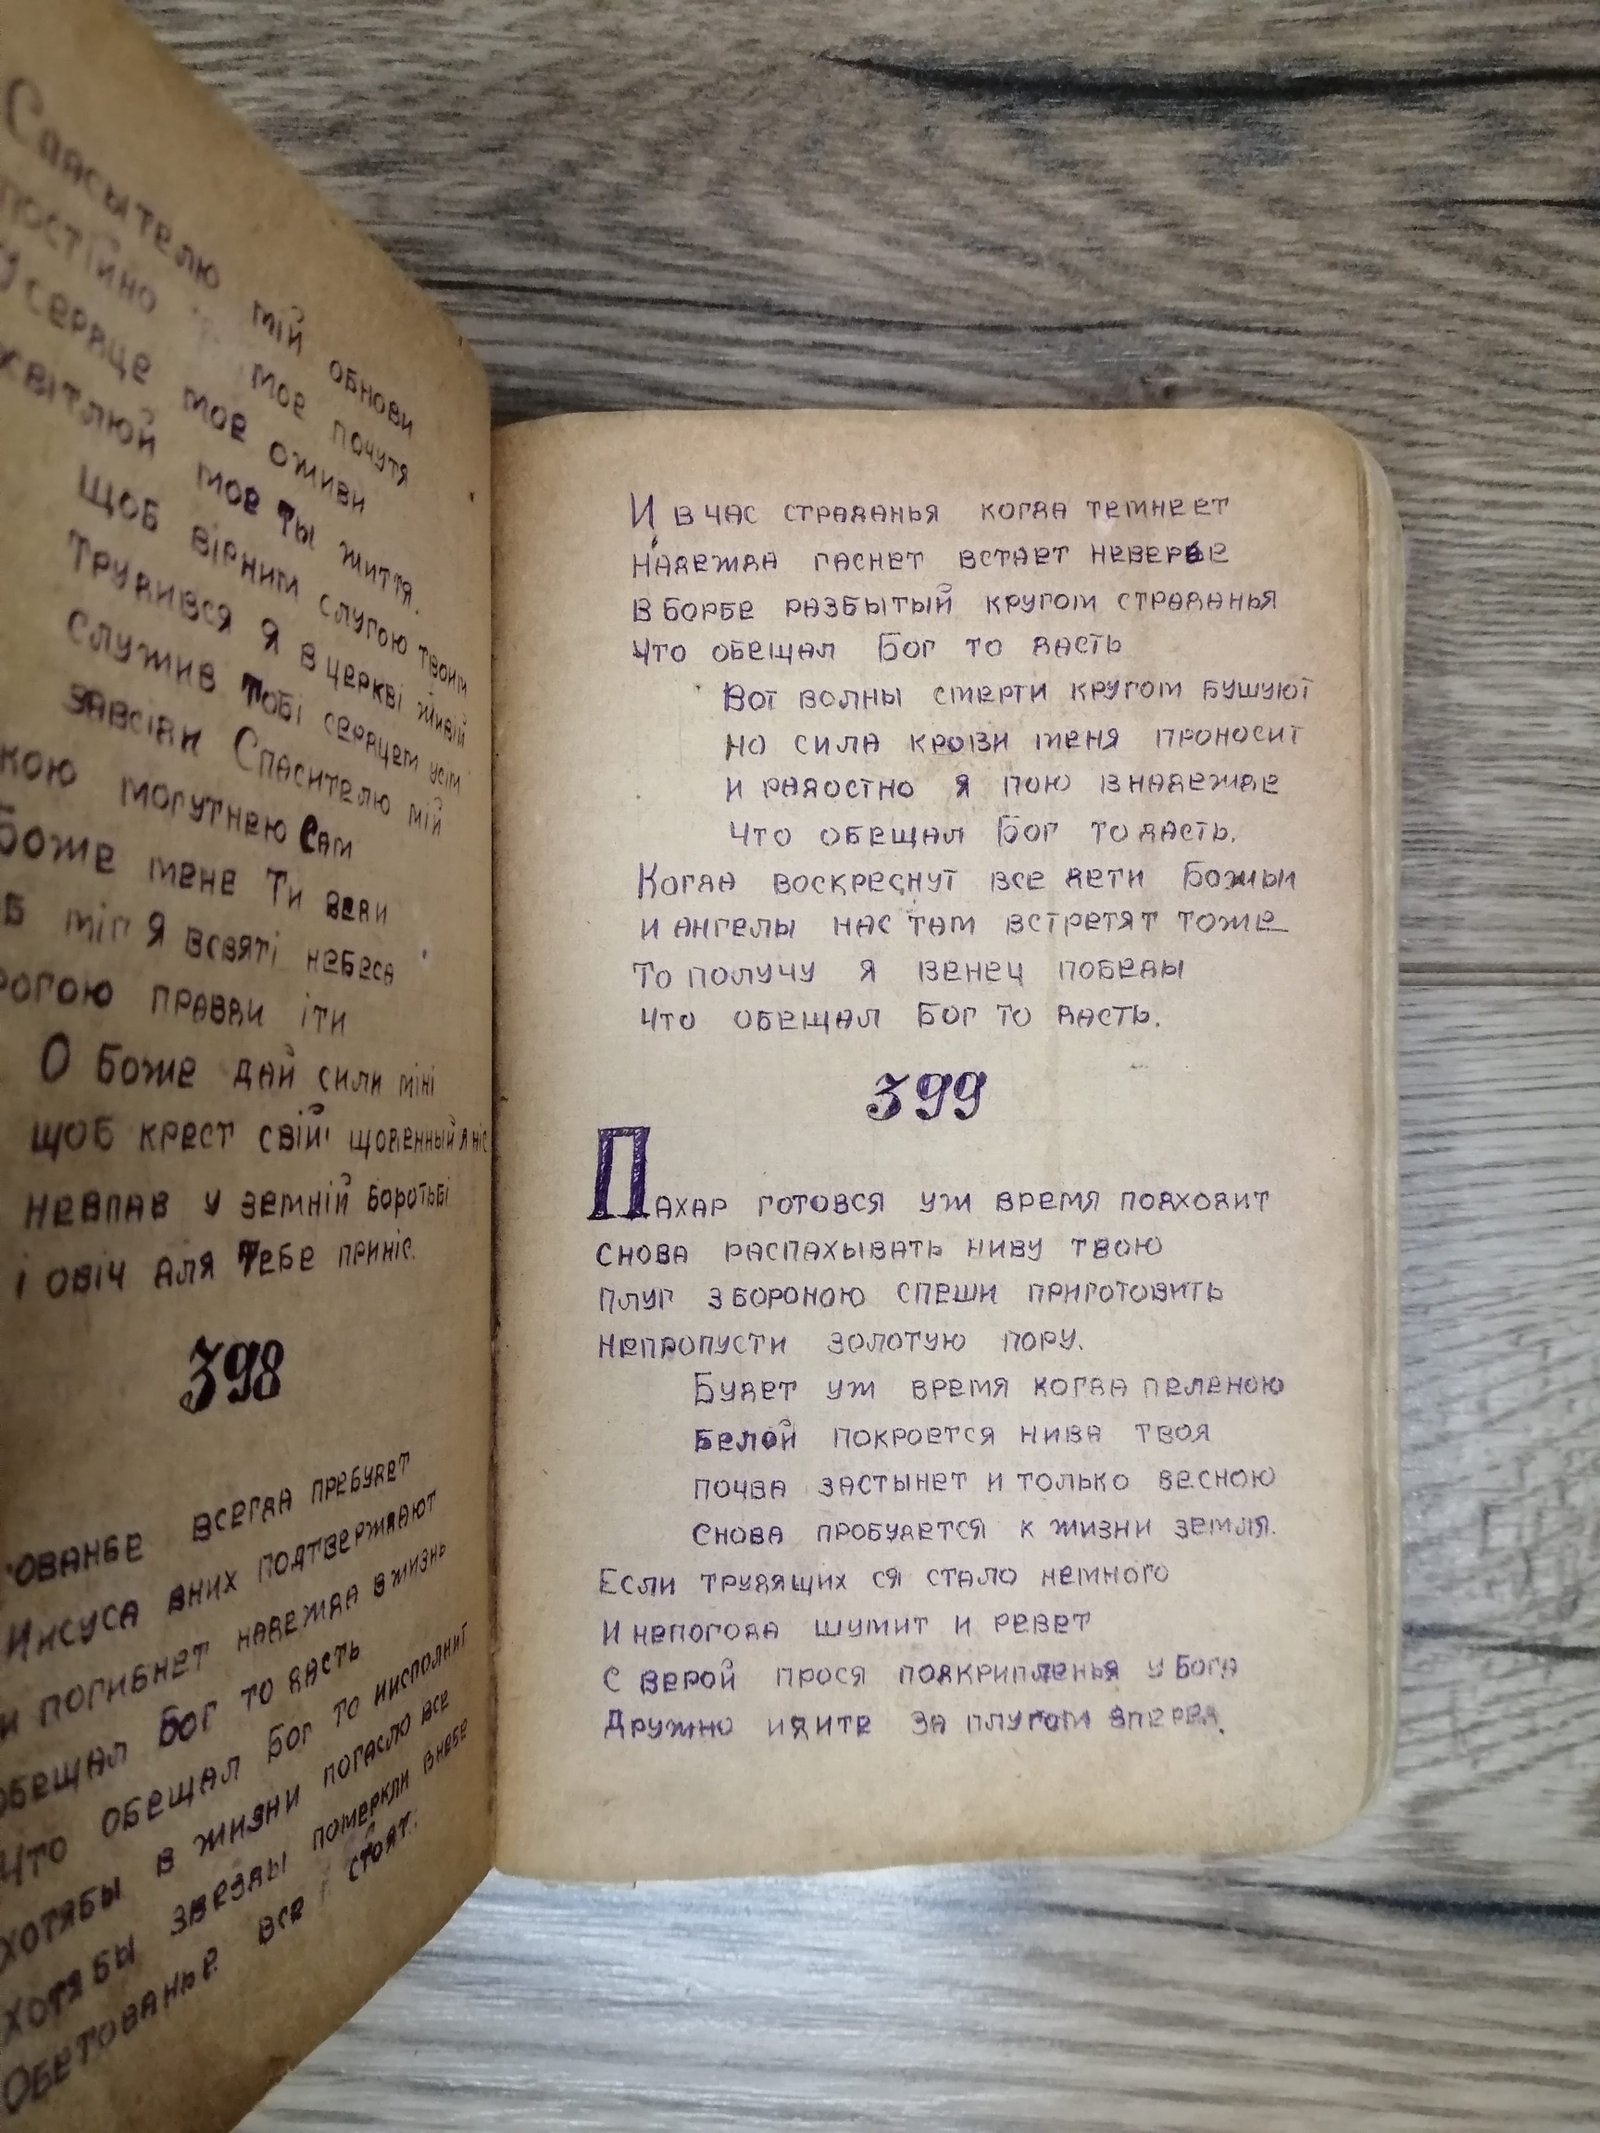 Спасытелю мій обнови
постійно мое почутя
сердце мое оживи
мое ты життя.
Щоб вірним слугою твоим
трудився я в церкві живій
служив тобі сердцем усім
завсіди Спасителю мій
могутнею Сам
Боже мене Ти веди
міг я всвяті небеса
правди іти
О Боже дай сили міні
щоб крест свій щоденный я ніс
невпав у земній боротьбі
і овіч для Тебе приніс.
398
всегда пребудет
Иисуса вних подтверждают
и погибнет надежда вжизнь
обещал Бог то дасть
Что обещал Бог то иисполнит
Хотябы в жизни погасло все
Хотябы звезды померкли внебе
Обетованье все стоят.
И в час страданья когда темнеет
Надежда гаснет встает неверье
В борбе разбытый кругом страданья
Что обещал Бог то дасть
Вот волны смерти кругом бушуют
но сила крови меня проносит
и радостно я пою внадежде
Что обещал Бог то дасть.
Когда воскреснут все дети Божьи
и ангелы нас там встретят тоже
То получу я венец победы
Что обещал Бог то дасть.
399
Пахар готовся уж время подходит
снова распахывать ниву твою
плуг з бороною спеши приготовить
непропусти золотую пору.
Будет уж время когда пеленою
белой покроется нива твоя
почва застынет и только весною
снова пробудется к жизни земля.
Если трудящих ся стало немного
И непогода шумит и ревет
с верой прося подкрипленья у Бога
Дружно идите за плугом вперед.